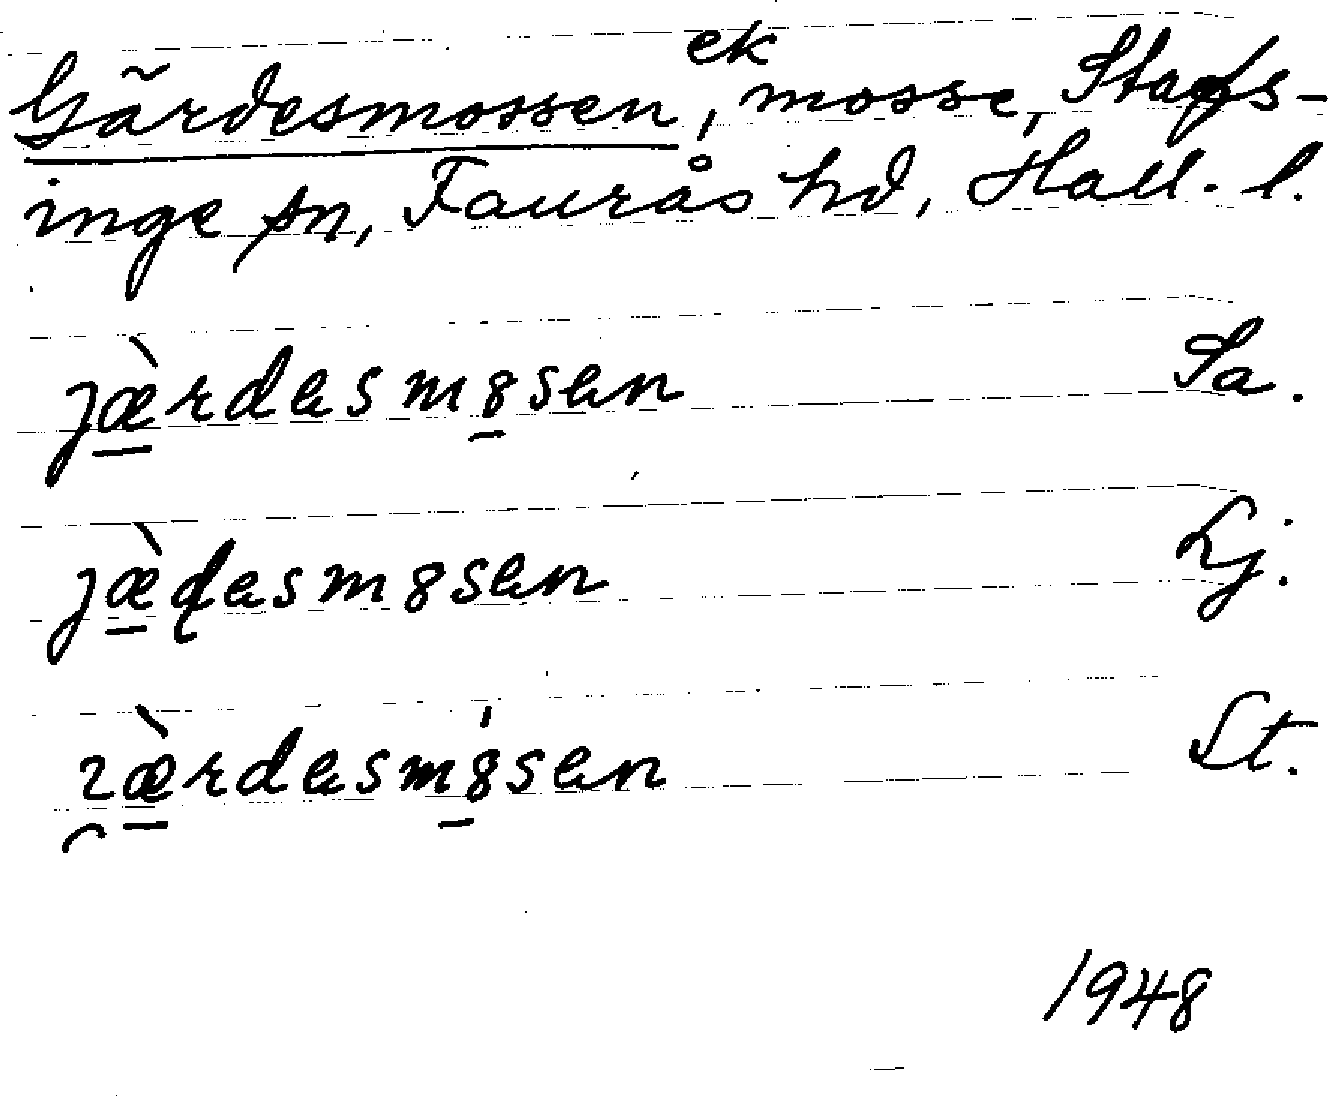 Gärdesmossen, ek mosse, Stafs-
inge sn, Faurås hd, Hall. l.
jæ̀rdesm8sen Sa.
jæ̀desm8sen Lj.
ɀæ̀rdesm8́sen St.
1948